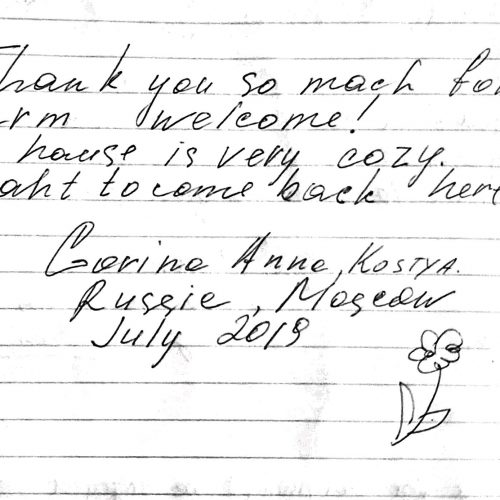 Thank you so mach for
arm welcome!
house is very cozy.
aht to come back here
Garina Anna, KOSTYA.
Russie, Moscow
July 2019